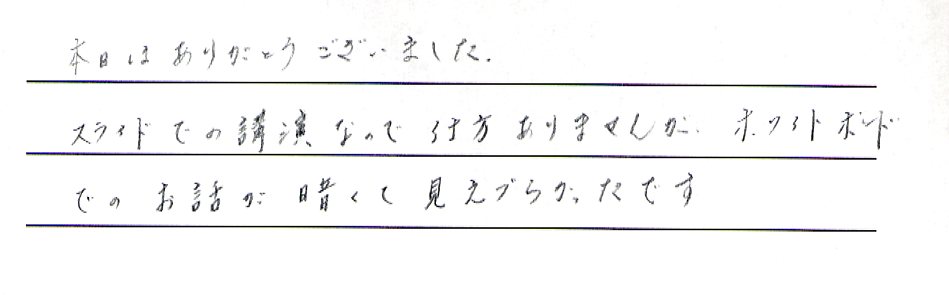 本日はありがとうございました.
スライドでの講演なので仕方ありませんが、ホワイトボード
でのお話が暗くて見えづらかったです